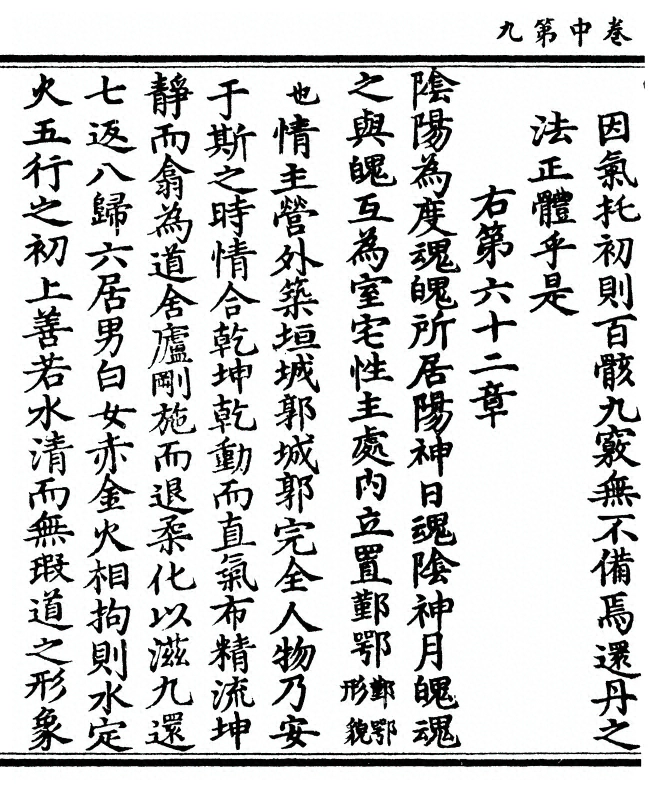 卷中第九
因氣托初則百骸九竅無不備焉還丹之
法正體乎是
右第六十二章
陰陽為度魂魄所居陽神日魂陰神月魄魂
之與魄互為室宅性主處內立置鄞鄂鄞鄂形貌
也情主營外築垣城郭城郭完全人物乃安
于斯之時情合乾坤乾動而直氣布精流坤
靜而翕為道舍廬剛施而退柔化以滋九還
七返八歸六居男白女赤金火相拘則水定
火五行之初上善若水清而無瑕道之形象